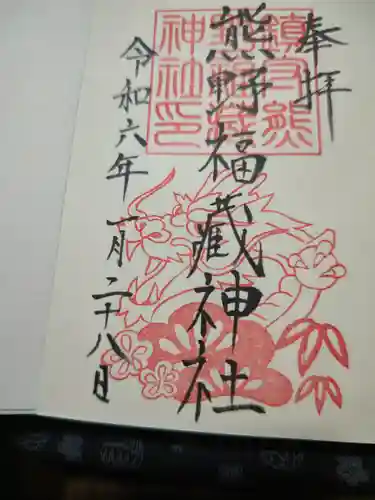 奉拝
熊野福蔵神社
令和六年一月二十八日
鎮守熊
神社印